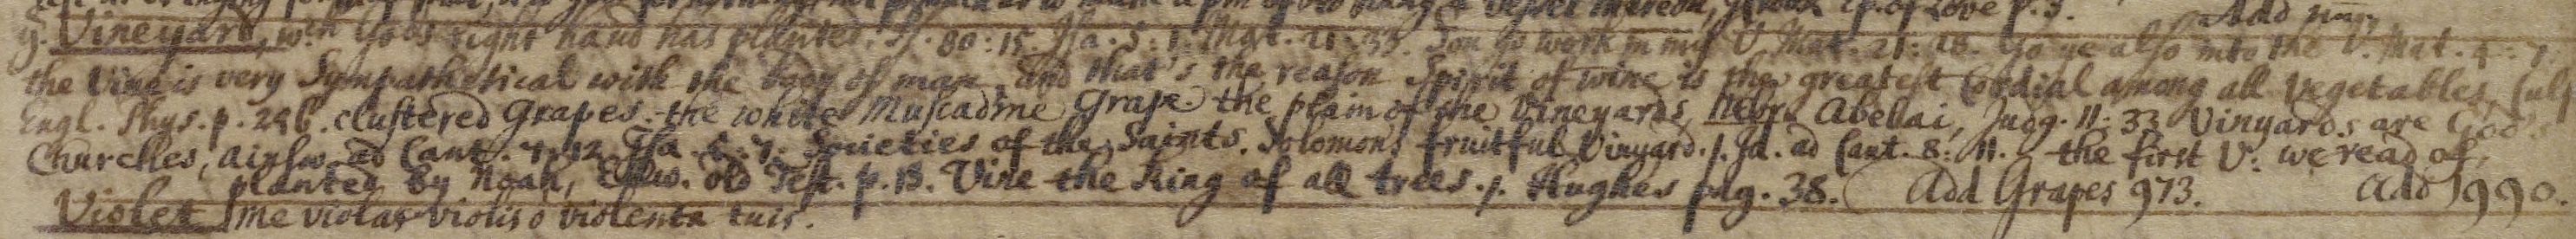 Add
y. Vineyard, wch Gods right hand has planted. Ps. 80: 15. Isa. 5: 1. Mat. 21: 33. Son go work in my V. Mat. 21: 28. Go ye also into the V. Mat.
the Vine is very Sympathetical with the body of man, and that's the reason Spirit of wine is the greatest Cordial among all Vegetables, Culp
Engl. Phys. p. 246. clustered Grapes. the white Muscadine Grape. the plain of the Vineyards, hebr. Abellai, Judg. 11: 33 Vinyards are God's
Churches, Ainsw. ad Cant. 7. 12. Isa. 5: 7. Societies of the Saints. Solomons fruitful Vinyard. J. Id. ad Cant. 8: 11. the first V: we read of,
planted by Noah, old Test. p. 13. Vine the King of all trees. J. Hughes pag. 38. Add Grapes 973. Add 990.
Violet Me violas violis o violenta tuis.